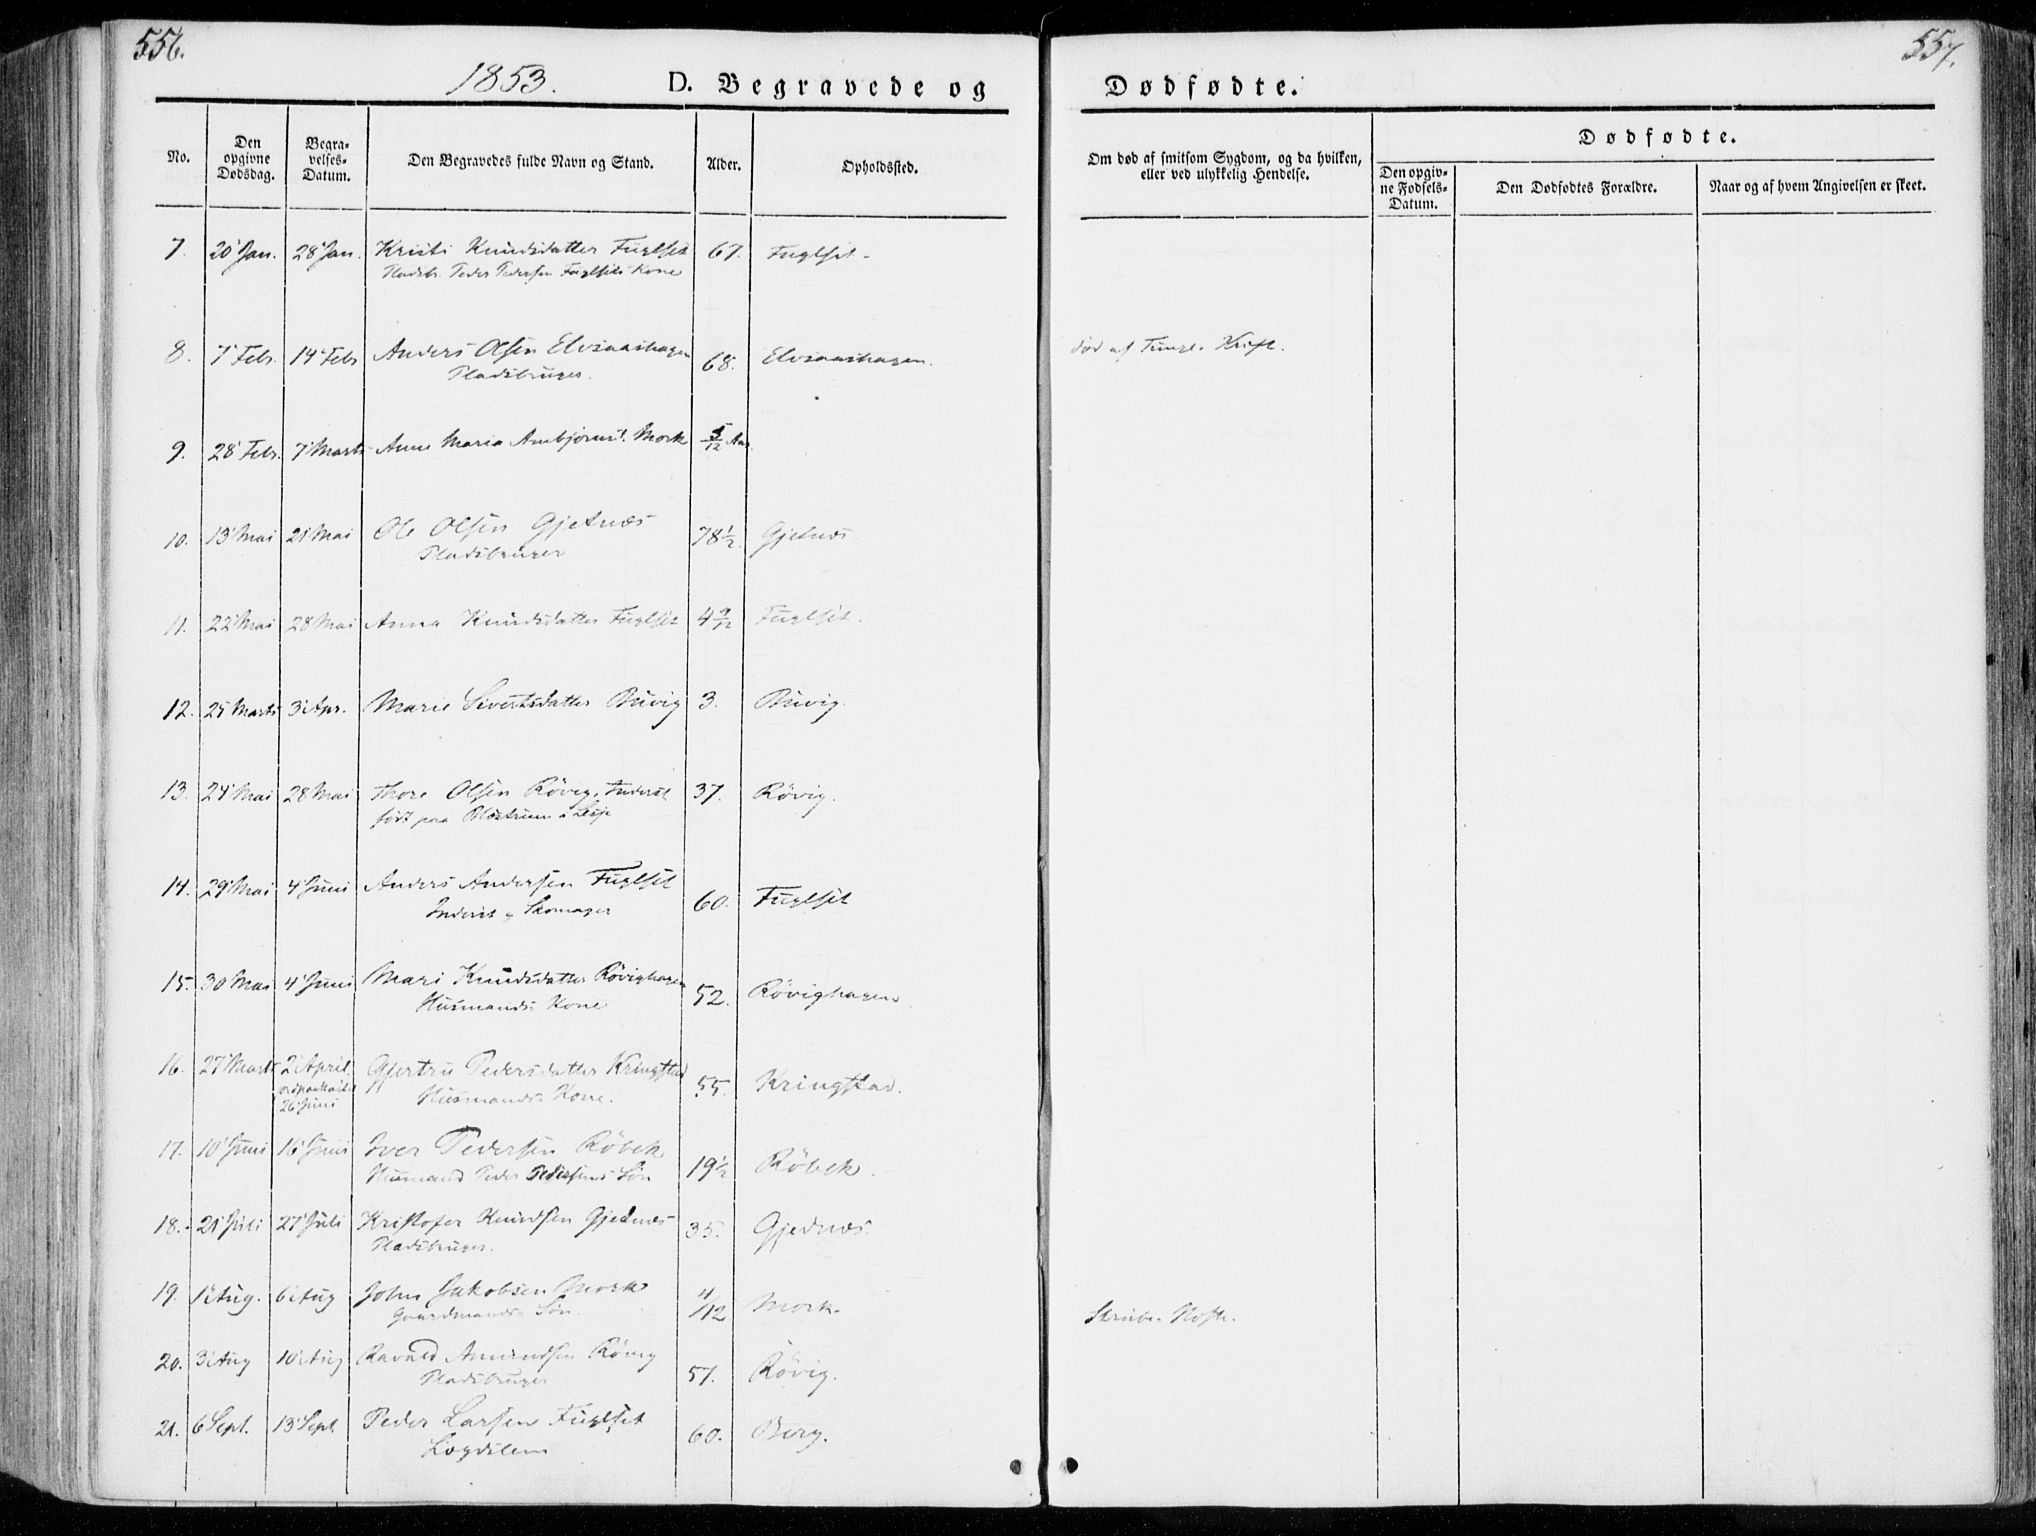 556.
557.
1853.
D. Begravede og
Dødfødte.
No.
Den opgivne Dødsdag.
Begravelses-Datum.
Den Begravedes fulde Navn og Stand.
Alder.
Opholdssted.
Om død af smitsom Sygdom, og da hvilken, eller ved ulykkelig Hendelse.
Dødfødte.
Den opgivne Fødsels-Datum.
Den Dødfødtes Forældre.
Naar og af hvem Angivelsen er skeet.
7. 20' Jan. 28' Jan. Kristi Knudsdatter Fuglset 67. Fuglset
Pladsbr. Peder Pedersen Fuglsets Kone
8. 7' Febr. 14' Febr Anders Olsen Elvsaashagen 68. Elvsaashagen. død af Kræft.
Pladsbruger.
9. 28' Febr. 7' Marts Anne Maria Ambjørnsd. Mork 5/12 Aar
10. 13' Mai 21' Mai Ole Olsen Gjetnæs 78 1/2. Gjetnæs.
Pladsbruger
11. 22' Mai 28' Mai Anna Knudsdatter Fuglset 4 9/12 Fuglset.
12. 25' Marts 3' Apr. Marie Sivertsdatter Buvig 3. Buvig.
13. 24' Mai 28' Mai Thore Olsen Røvig, Inderst 37. Røvig.
født paa Lesje
14. 29' Mai 4' Juni Anders Andersen Fuglset 60. Fuglset
Inderst og Skomager
15. 30 Mai 4' Juni Mari Knudsdatter Røvighagen 52. Røvighagen.
Husmands Kone
16. 27' Marts 2' April Gjertru Pedersdatter Kringstad 55. Kringstad.
26' Juni Husmands Kone.
17. 10' Juni 16' Juni Iver Pedersen Røbek 19 1/2 Røbek.
Husmand Peder Pedersens Søn
18. 21' Juli 27' Juli Kristofer Knudsen Gjednæs 35. Gjednæs.
Pladsbruger.
19. 1' Aug. 6' Aug John Jakobsen Mork 4/12 Mork. Strube-Hoste.
Gaardmands Søn.
20. 3' Aug 10' Aug Ravald Amundsen Røvig 57. Røvig.
Pladsbruger
21. 6 Sept. 13' Sept. Peder Larsen Fuglset 60. Berg.
Lægdslem